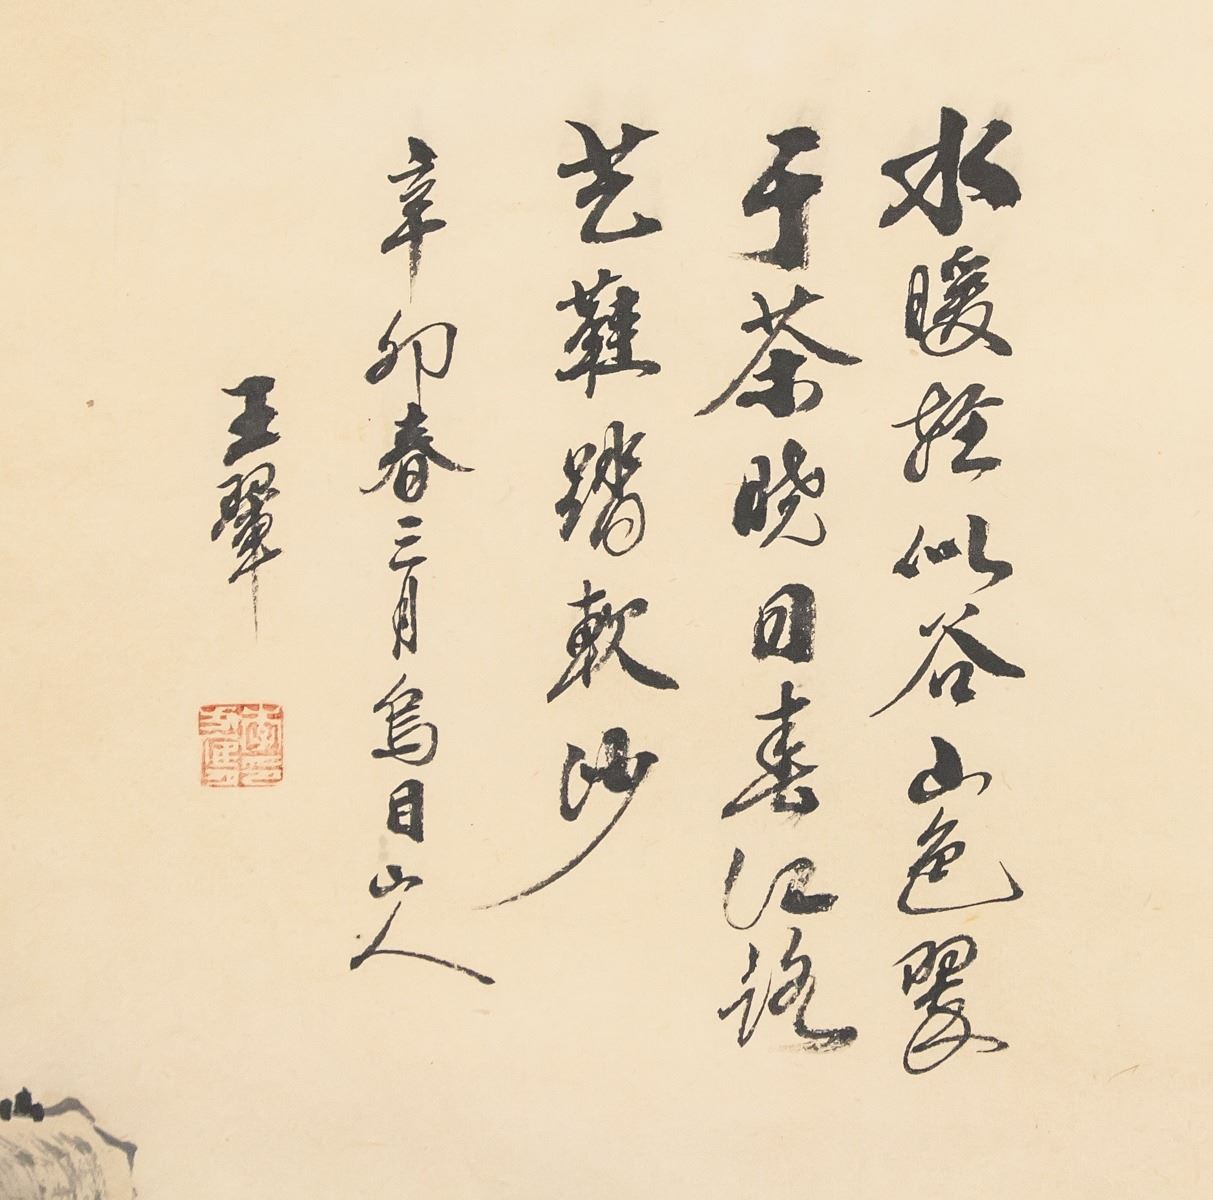 水暖輕似谷山色翠
于茶曉日春江路
芒鞋踏軟沙
辛卯春三月烏目山人
王翬